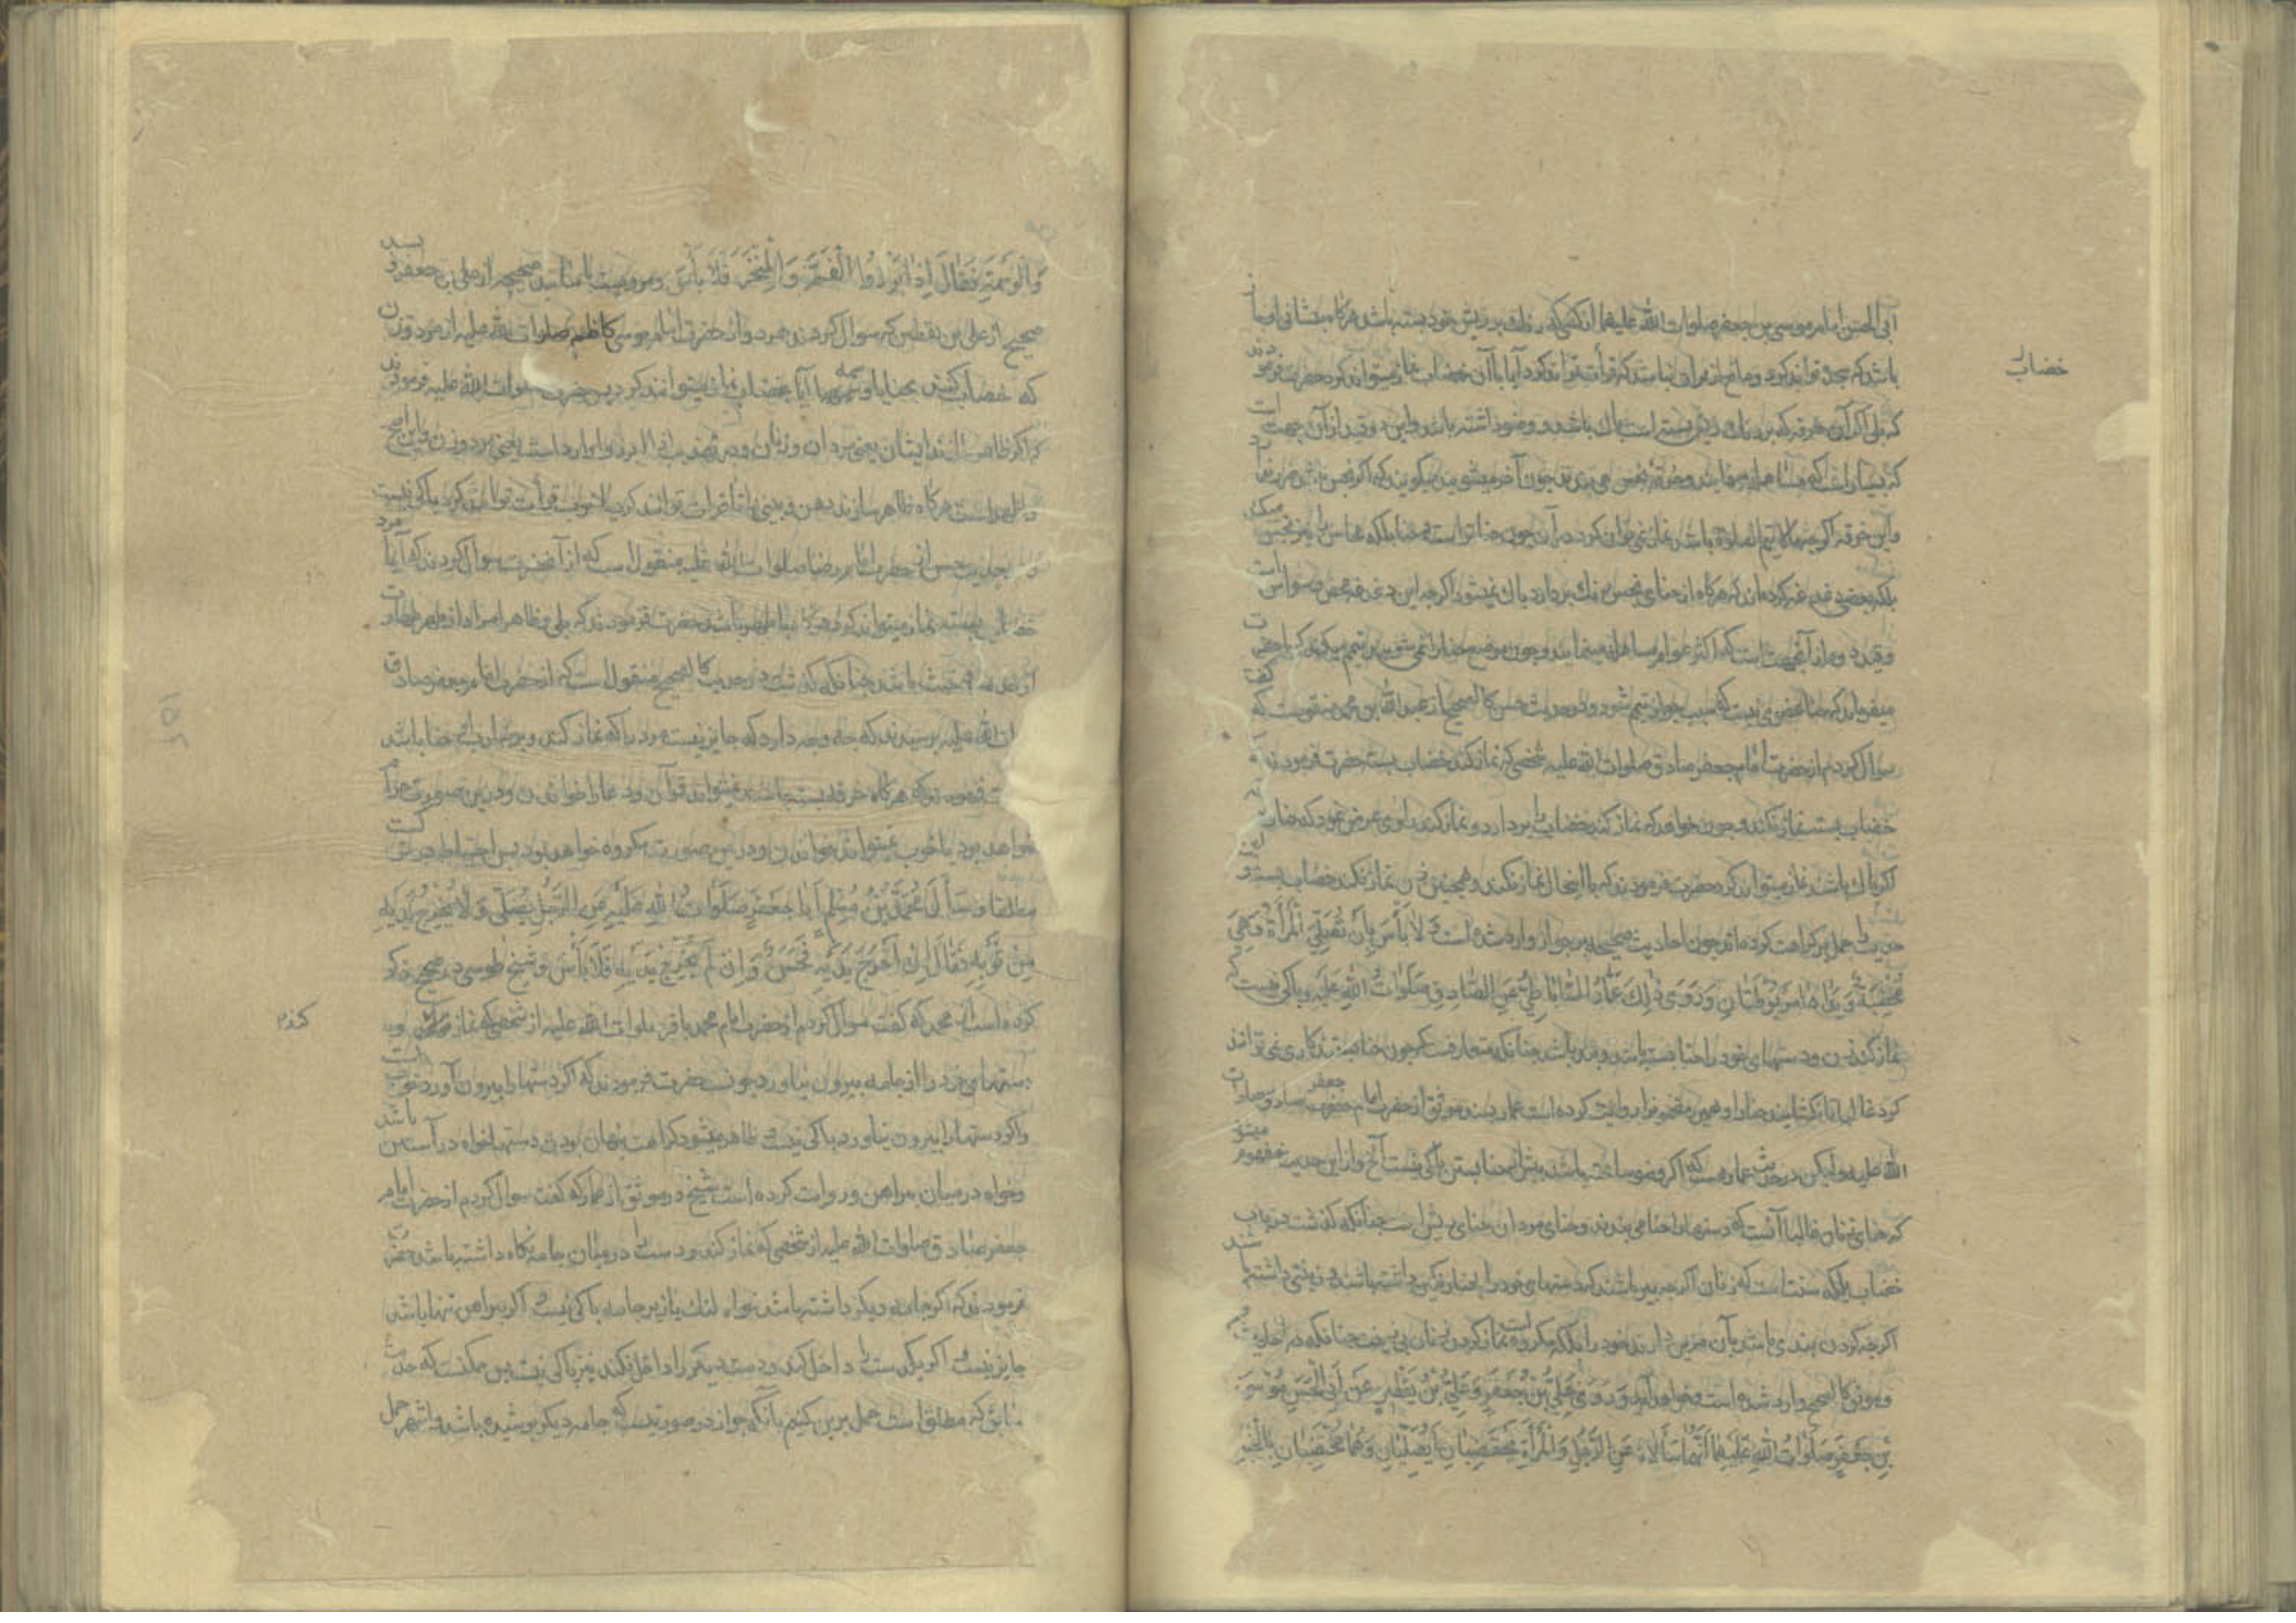 ابی الحسن امام موسی بن جعفر صلوات الله علیهما از کسی که رنگ بر ریش خود بسته باشد هرگاه پیشانی او ماز
باشد که سجده تواند کرد و مانع از قرائت نباشد که قرائت تواند کرد آیا با آن خضاب نماز میتواند کرد حضرت فرمودند
خضاب را
که بلی اگر آن خرقه که بر رنگ ریش بسته است پاک باشد و وضو داشته باشد و این دو قید از آن جهت است
که بسیار است که مساهله می‌نمایند و خرقه نجس می‌بندند چون آخر میشویند میگویند که اگر نجس باشد ضرر ندارد
و این خرقه اگر چه مالایتم الصلوة باشد نماز نمی‌توان کرد در آن چون حنا تر است و حنا بلکه محاسن را نیز نجس میکند
بلکه بعضی دغدغه کرده‌اند که هرگاه از حنای نجس رنگ بردارد پاک نمیشود اگر چه این دغدغه محض وسواس است
و قید وضو از آنجهت است که اکثر عوام مساهله مینمایند و چون موضع حنا را نمی‌شویند تیمم میکنند که با حضرت
میفرماید که حنا عذری نیست که سبب جواز تیمم شود و در حدیث حسن کالصحیح از عبد الله بن محمد منقولست که گفت
سوال کردم از حضرت امام جعفر صادق صلوات الله علیه شخصی که نماز کند خضاب بسته حضرت فرمودند
خضاب بسته نماز نکند و چون خواهد که نماز کند خضاب را بردارد و نماز کند راوی عرض نمود که حنا
اگر پاک باشد نماز میتواند کرد حضرت فرمودند که با اینحال نماز نکند و همچنین زن نماز نکند خضاب بسته و
حدیث را حمل بر کراهت کرده‌اند چون احادیث صحیحه بر جواز وارد شده است وَلا بَأْسَ بِأَنْ تُصَلِّيَ الْمَرْأَةُ وَهِيَ
مُخْتَضِبَةٌ وَيَدَاهَا مَرْبُوطَتَانِ وَرَوَى ذٰلِكَ عَمَّارُ السَّابَاطِيُّ عَنِ الصَّادِقِ صَلَوَاتُ اللهِ عَلَيْهِ و باکی نیست که
نماز کند زن و دستهای خود را حنا بسته باشد و بند باشد چنانکه متعارفست که چون حنا بستند کاری نمی‌توانند
کرد غالبا تا نگشایند حنا را و همین مضمون را روایت کرده است عمار بسند موثق از حضرت امام جعفر صادق صلوات
الله علیه و لیکن در حدیث عمار هست که اگر وضو ساخته باشد پیش از حنا بستن باکی نیست الخ و از این حدیث مفهوم میشود
که حنای زنان غالبا آنست که دستها را حنا می‌بندند و حنای مردان حنای ریش است چنانکه گذشت در باب
خضاب بلکه سنت است که زنان اگر چه پیر باشند که دستهای خود را بحنا رنگین داشته باشند و زینتی داشته باشند
اگر چه گردن بندی باشد بآن مزین دارند خود را بلکه مکروه است نماز کردن زنان بی زینت چنانکه در احادیث
و موثق کالصحیح وارد شده است و خواهد آمد وَرَوَى عَلِيُّ بْنُ جَعْفَرٍ وَعَلِيُّ بْنُ يَقْطِينٍ عَنْ أَبِي الْحَسَنِ مُوسَى
بْنِ جَعْفَرٍ صَلَوَاتُ اللهِ عَلَيْهِمَا أَنَّهُمَا سَأَلَاهُ عَنِ الرَّجُلِ وَالْمَرْأَةِ يَخْتَضِبَانِ أَيُصَلِّيَانِ وَهُمَا مُخْتَضِبَانِ بِالْحِنَّاءِ
وَالْوَسِمَةِ فَقَالَ إِذَا أَبْرَزُوا الْفَمَ وَالْمَنْخِرَ فَلَا بَأْسَ و مرویست باسانید صحیحه از علی بن جعفر و بسند
صحیح از علی بن یقطین که سوال کردند هر دو از حضرت امام موسی کاظم صلوات الله علیه از مرد و زن
که خضاب کنند بحنا یا وسمه آیا بخضاب نماز میتوانند کرد پس حضرت صلوات الله علیه فرمودند
که اگر ظاهر سازند ایشان یعنی مردان و زنان و در تهذیب اذا ابرزوا وارد است یعنی مرد و زن و این اصح
و اظهر است هرگاه ظاهر سازند دهن و بینی را تا قرائت توانند کرد یا خوب قرائت توانند کرد باکی نیست
و در حدیث حسن از حضرت امام رضا صلوات الله علیه منقول است که از آنحضرت سوال کردند که آیا مرد
خضاب بسته نماز میتواند کرد هرگاه با طهور باشد حضرت فرمودند که بلی و ظاهرا مراد از طهر طهارت
از حدث و خبث باشد چنانکه گذشت و در حدیث کالصحیح منقول است که از حضرت امام جعفر صادق
صلوات الله علیه پرسیدند که چه وجه دارد که جایز نیست مرد را که نماز کند و بر شارب او حنا باشد
حضرت فرمودند که هرگاه خرقه بسته باشد نمیتواند قرآن و دعا را خواندن و در این صورت حرام
خواهد بود یا خوب نمیتواند خواندن و در این صورت مکروه خواهد بود پس احتیاط در ترک است
مطلقا وَسَأَلَ مُحَمَّدُ بْنُ مُسْلِمٍ أَبَا جَعْفَرٍ صَلَوَاتُ اللهِ عَلَيْهِ عَنِ الرَّجُلِ يُصَلِّي وَلَا يُخْرِجُ يَدَيْهِ
مِنْ ثَوْبِهِ فَقَالَ إِنْ أَخْرَجَ يَدَيْهِ فَحَسَنٌ وَإِنْ لَمْ يُخْرِجْ يَدَيْهِ فَلَا بَأْسَ و شیخ طوسی در صحیح ذکر
کرده است از محمد که گفت سوال کردم از حضرت امام محمد باقر صلوات الله علیه از شخصی که نماز کند و
دستهای خود را از جامه بیرون نیاورد چونست حضرت فرمودند که اگر دستها را بیرون آورد خوب است
و اگر دستها را بیرون نیاورد باکی نیست ظاهر میشود کراهت پنهان بودن دستها خواه در آستین باشد
و خواه در میان پیراهن و روایت کرده است شیخ در موثق از عمار که گفت سوال کردم از حضرت امام
جعفر صادق صلوات الله علیه از شخصی که نماز کند و دست را در میان جامه نگاه داشته باشد حضرت
فرمودند که اگر جامه دیگر داشته باشد خواه لنگ یا زیر جامه باکی نیست اگر پیراهن تنها باشد
جایز نیست اگر یکدست را داخل کند و دست دیگر را داخل نکند نیز باکی نیست پس ممکنست که حدیث
سابق که مطلق است حمل برین کنیم بآنکه جواز در صورتیست که جامه دیگر پوشیده باشد و اشهر حمل